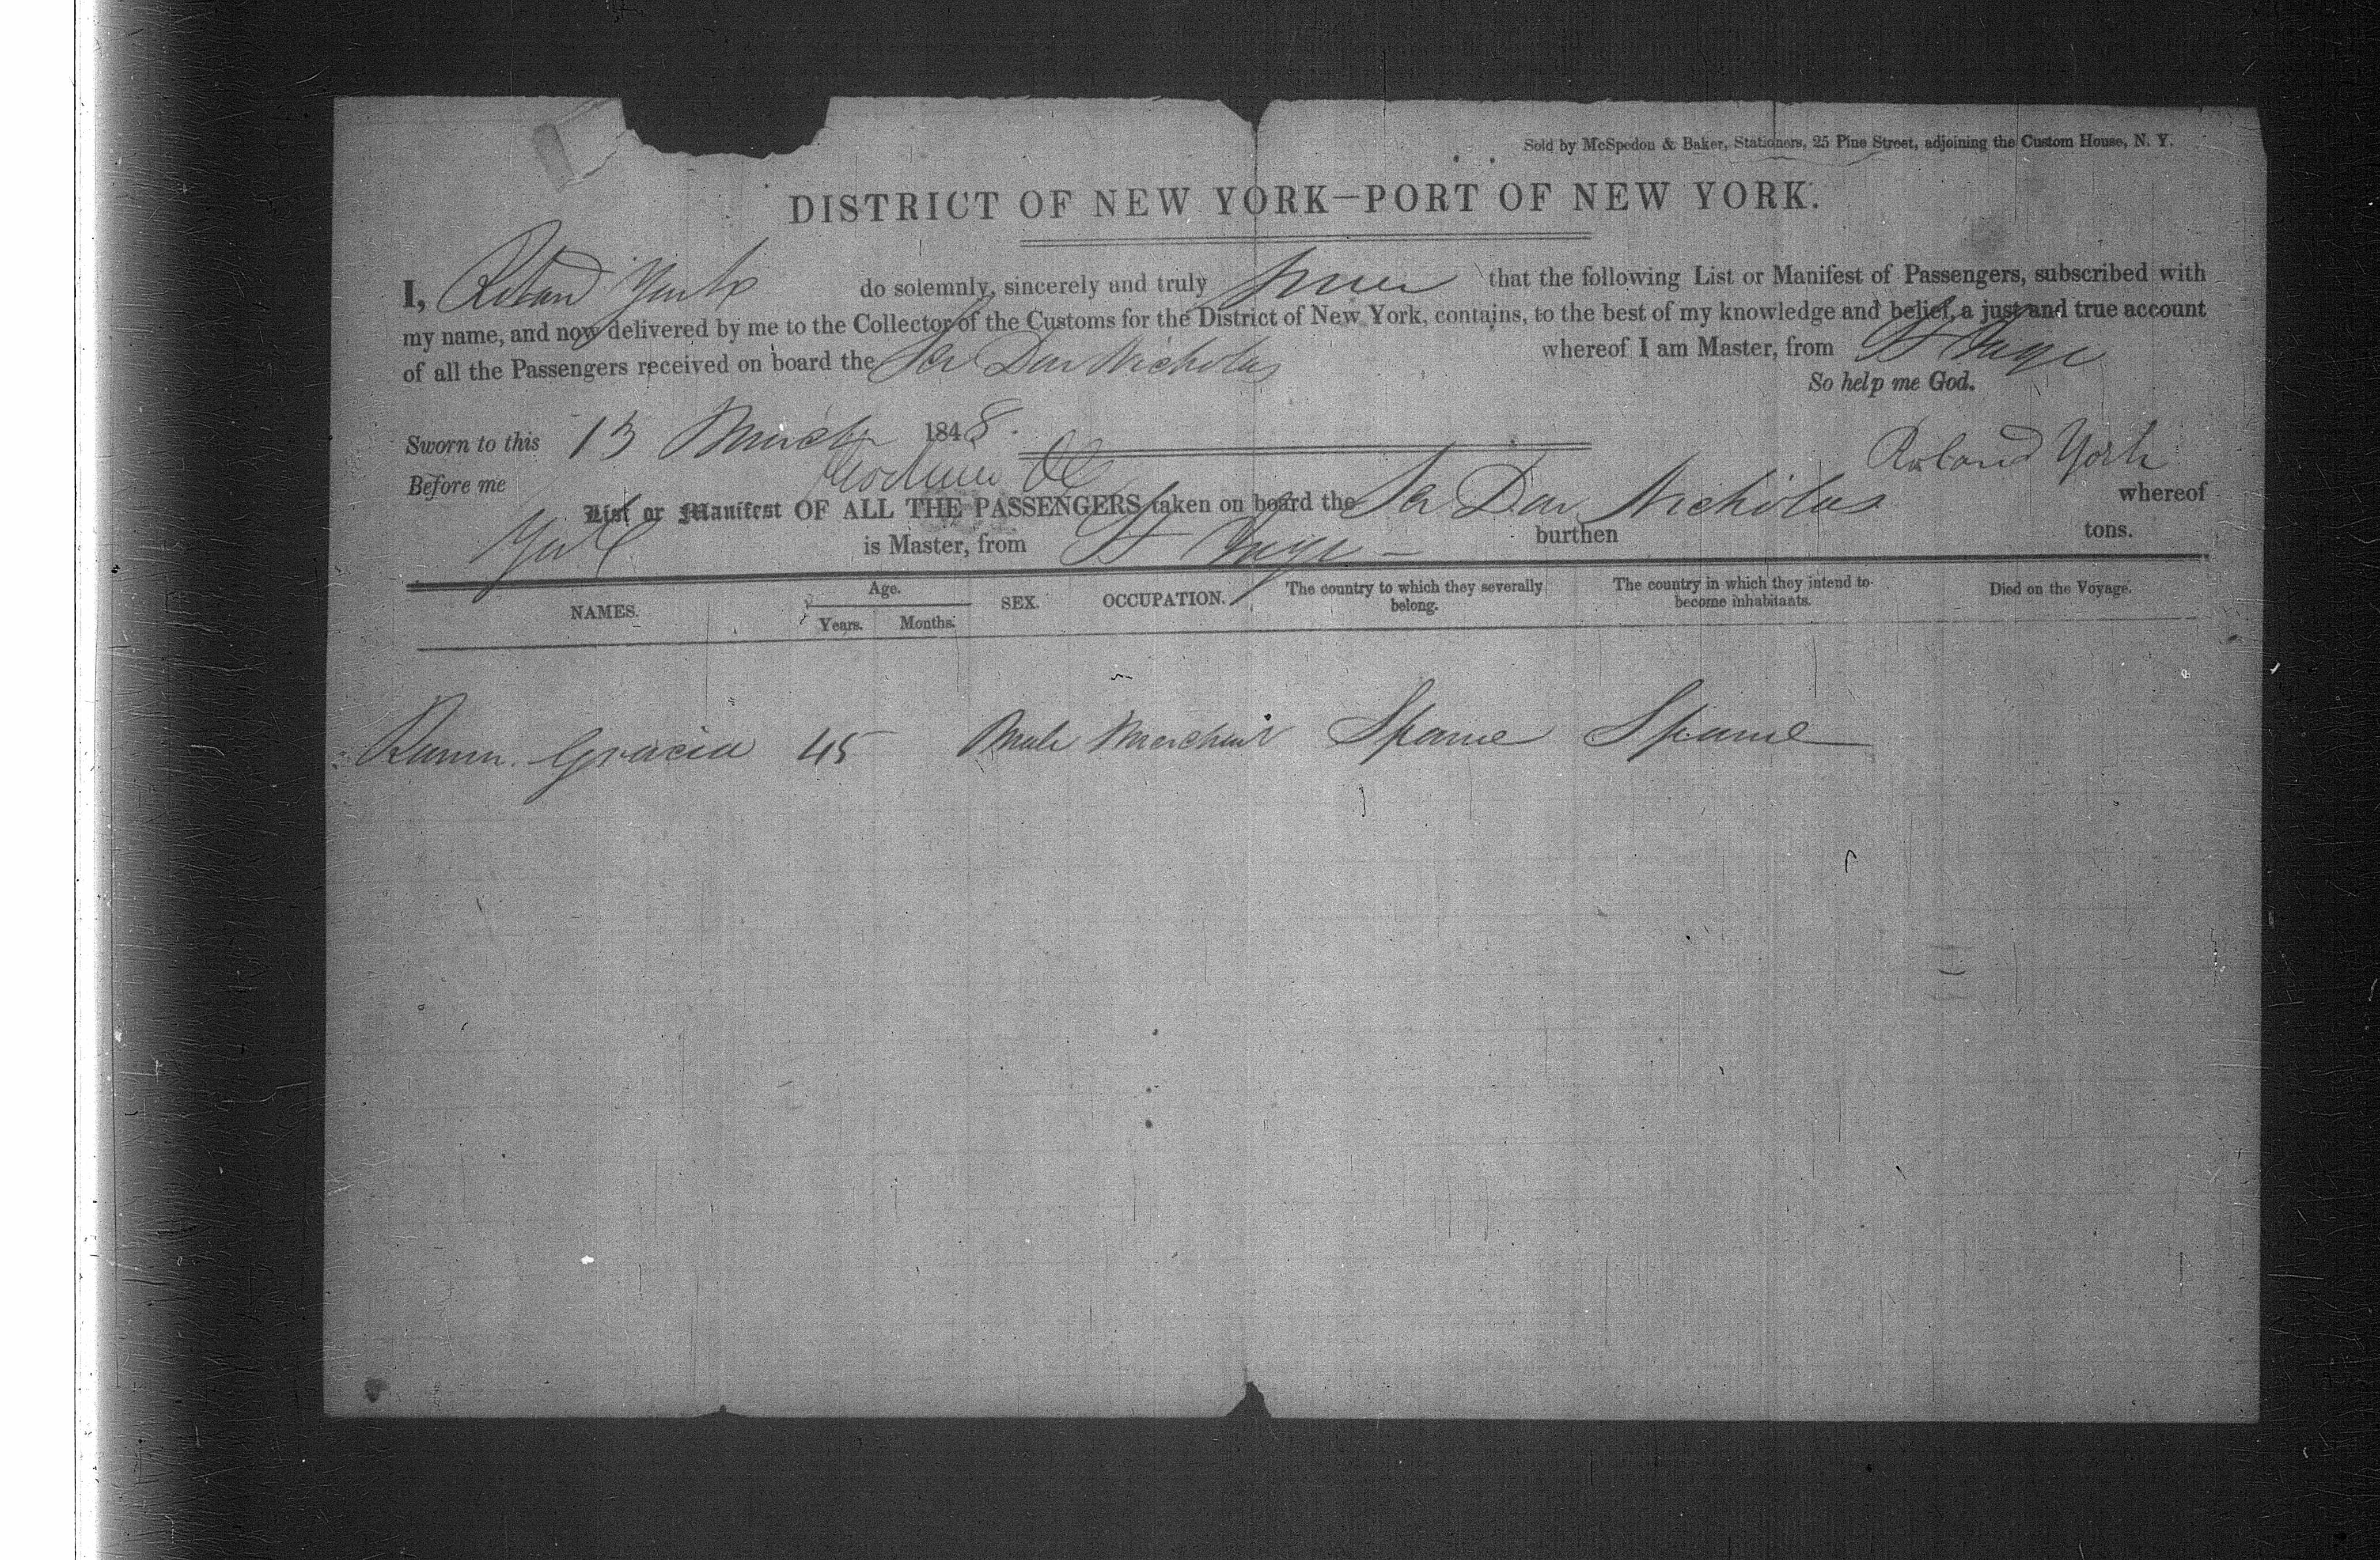 Sold by McSpedon & Baker, Stationers, 25 Pine Street, adjoining the Custom House, N. Y.
DISTRICT OF NEW YORK—PORT OF NEW YORK.
I, Roland York do solemnly, sincerely and truly swear that the following List or Manifest of Passengers, subscribed with
my name, and now delivered by me to the Collector of the Customs for the District of New York, contains, to the best of my knowledge and belief, a just and true account
of all the Passengers received on board the Scr Don Nicholas whereof I am Master, from St Jago
So help me God.
Sworn to this 13 March 1848.
Roland York
Before me
List or Manifest OF ALL THE PASSENGERS taken on board the Scr Don Nicholas whereof
York is Master, from St Jago burthen tons.
NAMES. Age. SEX. OCCUPATION. The country to which they severally belong. The country in which they intend to become inhabitants. Died on the Voyage.
Years. Months.
Gracia 45 Male Merchant Spaine Spaine